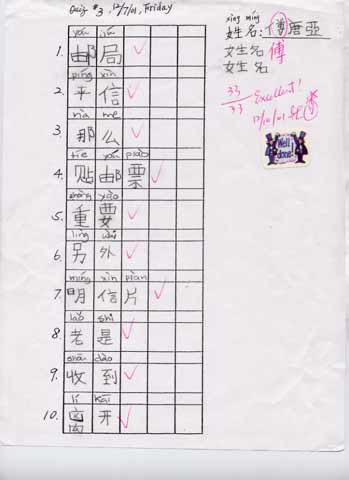 Quiz #3, 12/7/01, Friday
xìng míng
姓名: 傅唐亞
姓名 傅
姓名
33
33
Excellent!
12/10/01
Well done!
yóu jú
1. 邮局
píng xìn
2. 平信
nà me
3. 那么
tiē yóu piào
4. 贴邮票
zhòng yào
5. 重要
lìng wài
6. 另外
míng xìn piàn
7. 明信片
lǎo shì
8. 老是
shōu dào
9. 收到
lí kāi
10. 离开